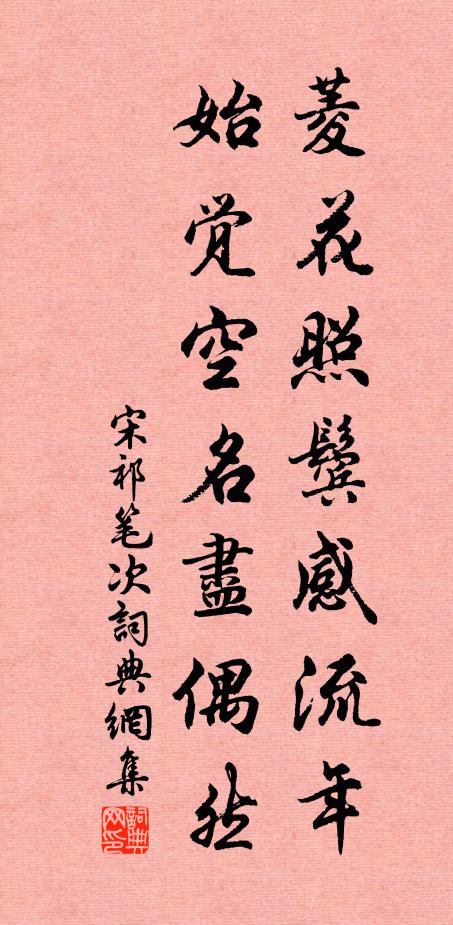 菱花照鬓感流年
始觉空名盡偶然
宋祁笔次詞典網集
詞典网印